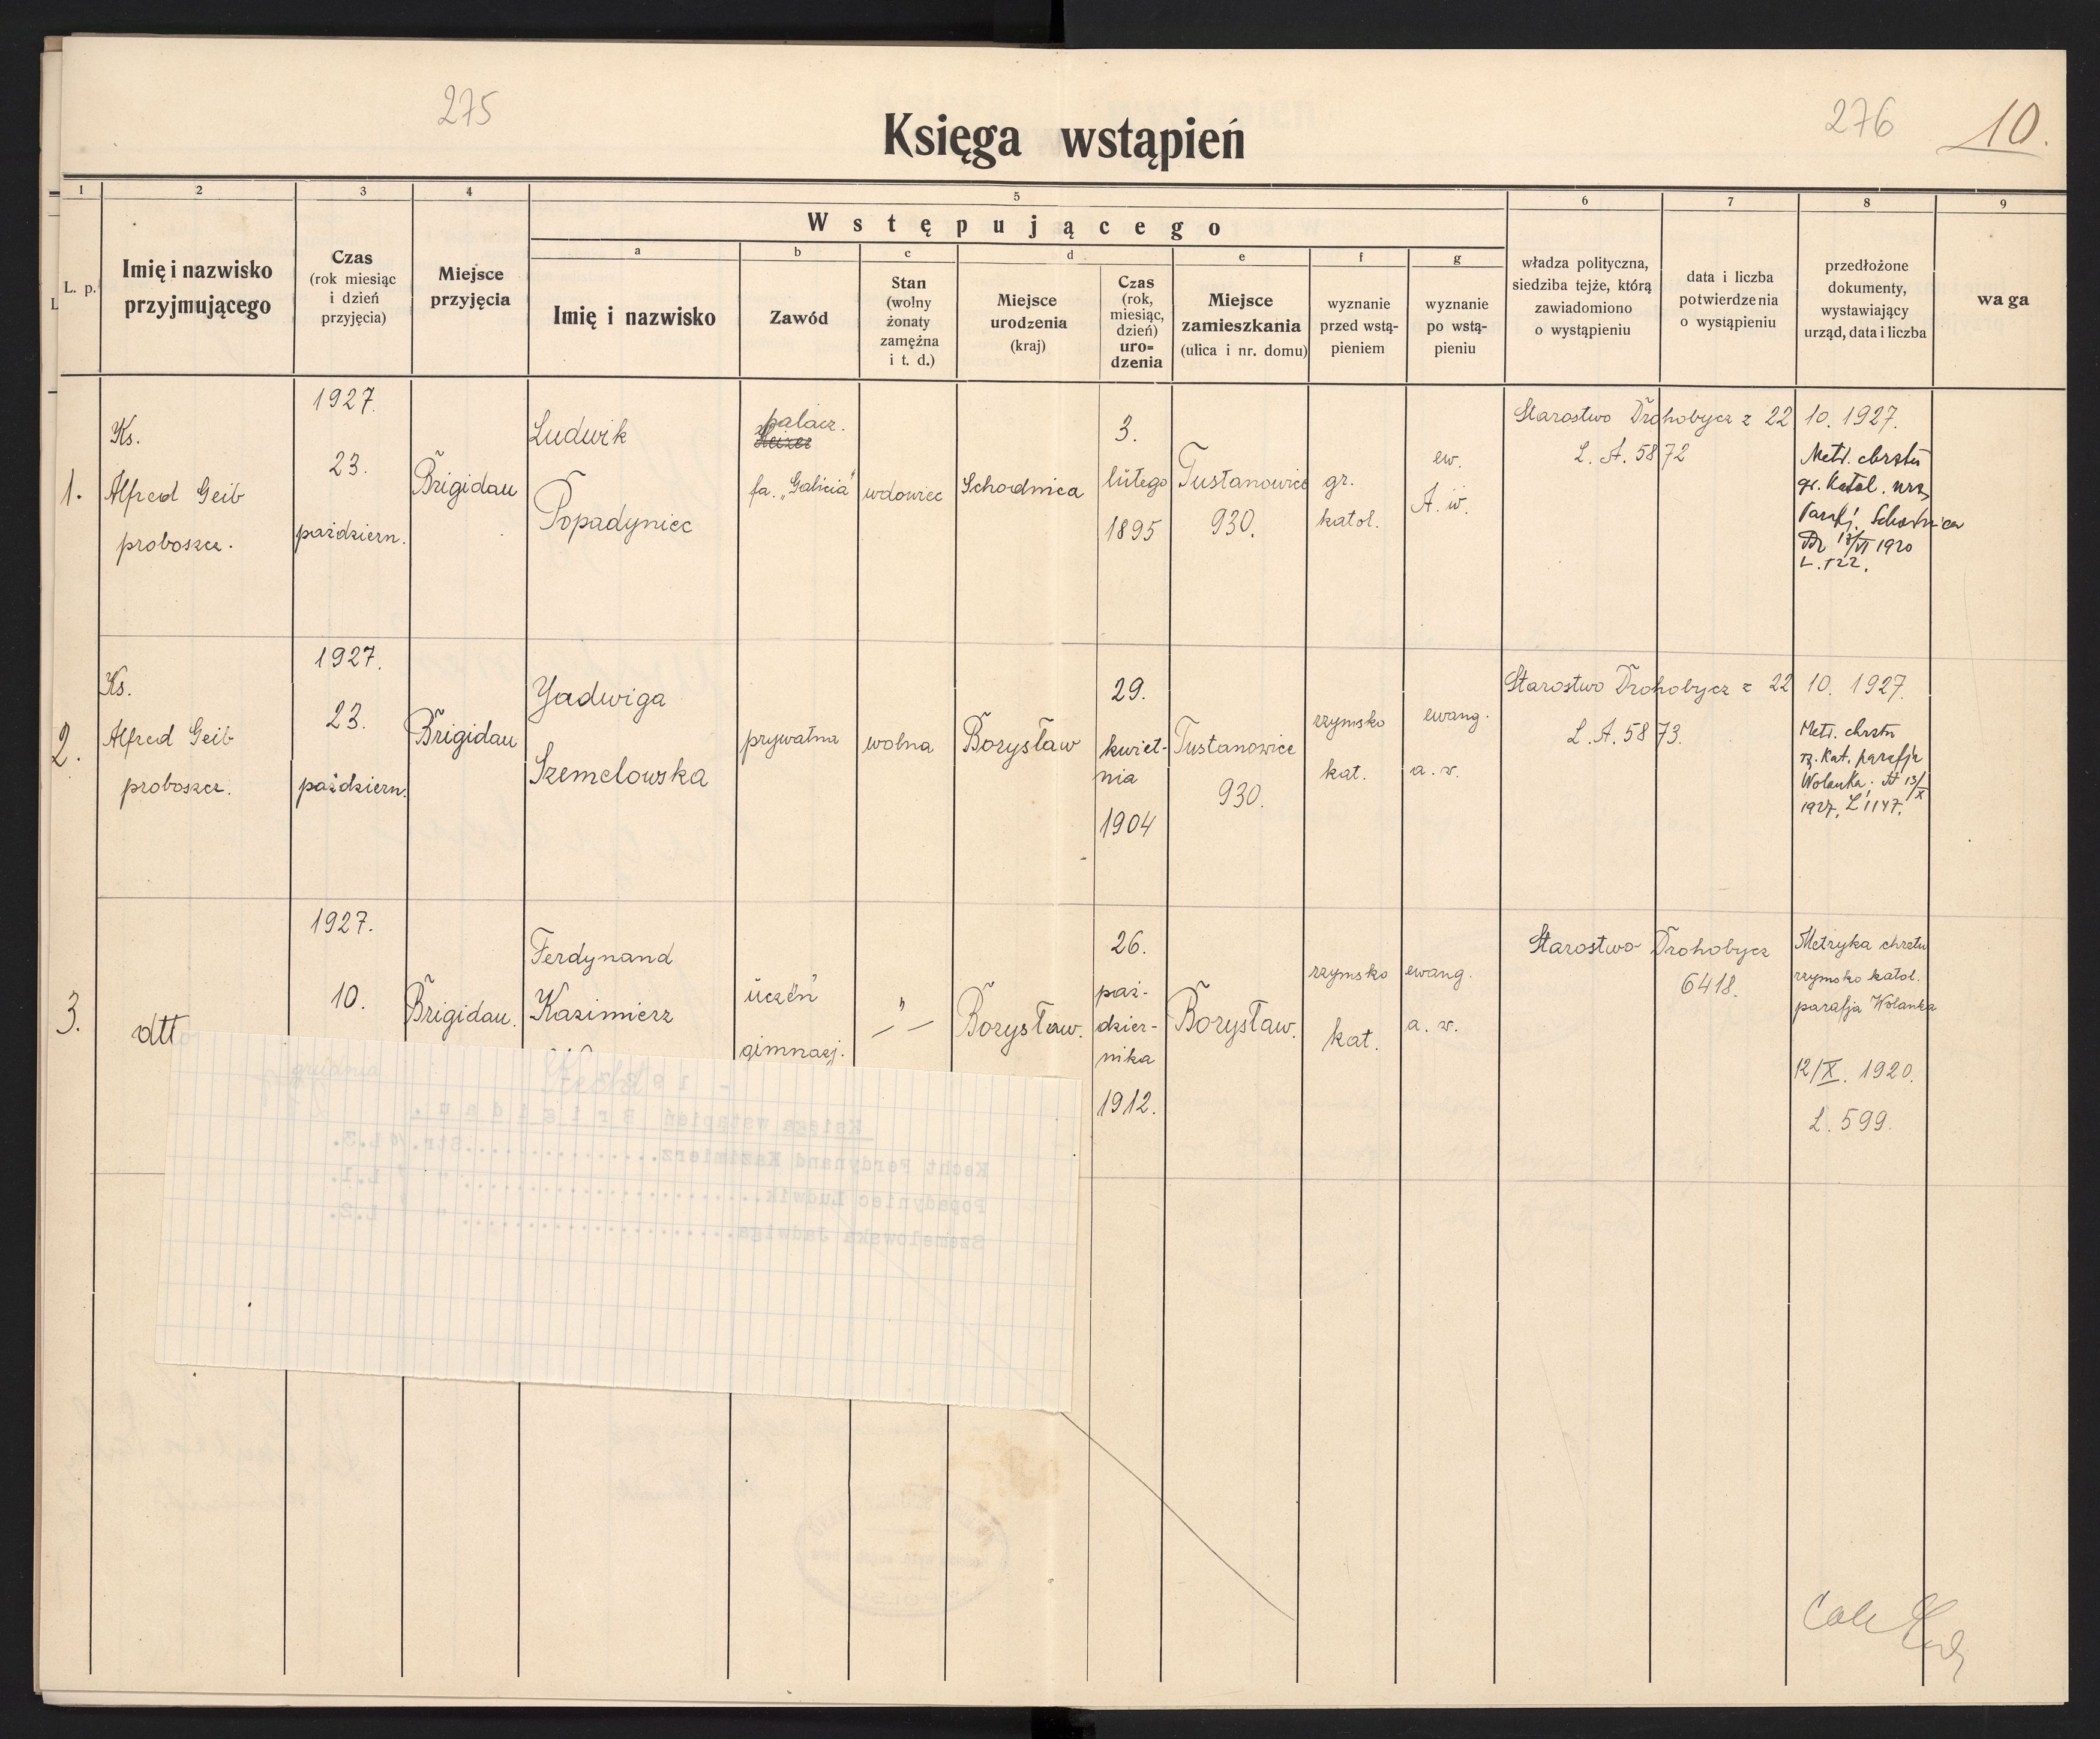 275
276
10.
Księga wstąpień
1
2
3
4
5
6
7
8
9
Wstępującego
a
b
c
d
e
f
g
L
L. p.
Imię i nazwisko
przyjmującego
Czas
(rok miesiąc
i dzień
przyjęcia)
Miejsce
przyjęcia
Imię i nazwisko
Zawód
Stan
(wolny
żonaty
zamężna
i t. d.)
Miejsce
urodzenia
(kraj)
Czas
(rok,
miesiąc,
dzień)
uro=
dzenia
Miejsce
zamieszkania
(ulica i nr. domu)
wyznanie
przed wstą-
pieniem
wyznanie
po wstą-
pieniu
władza polityczna,
siedziba tejże, którą
zawiadomiono
o wystąpieniu
data i liczba
potwierdzenia
o wystąpieniu
przedłożone
dokumenty,
wystawiający
urząd, data i liczba
wa ga
1.
Ks.
Alfred Geib
proboszcz.
1927.
23.
październ.
Brigidau
Ludwik
Popadyniec
palacz.
Heizer
fa. „Galicia"
wdowiec
Schodnica
3.
lutego
1895
Tustanowice
930.
gr.
katol.
ew.
A. w.
Starostwo Drohobycz z 22 10. 1927.
L. A. 5872
Metr. chrztu
gr. katol. urz.
Parafj. Schodnica
1920
L. 522.
2.
Ks.
Alfred Geib
proboszcz.
1927.
23.
październ.
Brigidau
Jadwiga
Szemelowska
prywatna
wolna
Borysław
29.
kwiet-
nia
1904
Tustanowice
930.
rzymsko
kat.
ewang.
a. w.
Starostwo Drohobycz z 22 10. 1927.
L. A. 5873.
Metr. chrztu
rz. kat. parafja
Wolanka; 13/X
1927, L 1147.
3.
dtt
1927.
10.
Brigidau.
Ferdynand
Kazimierz
uczeń
gimnazj.
— " —
Borysław.
26.
paź-
dzier-
nika
1912.
Borysław.
rzymsko
kat.
ewang.
a. w.
Starostwo Drohobycz
6418.
Metryka chrztu
rzymsko katol.
parafja Wolanka
12/X. 1920.
L. 599.
grudnia
- 1 9 2 7 -
Księga wstąpień B r i g i d a u .
Kecht Ferdynand Kazimierz...............Str./ L.3.
Popadyniec Ludwik....................... " / L.1.
Szemelowska Jadwiga..................... " / L.2.